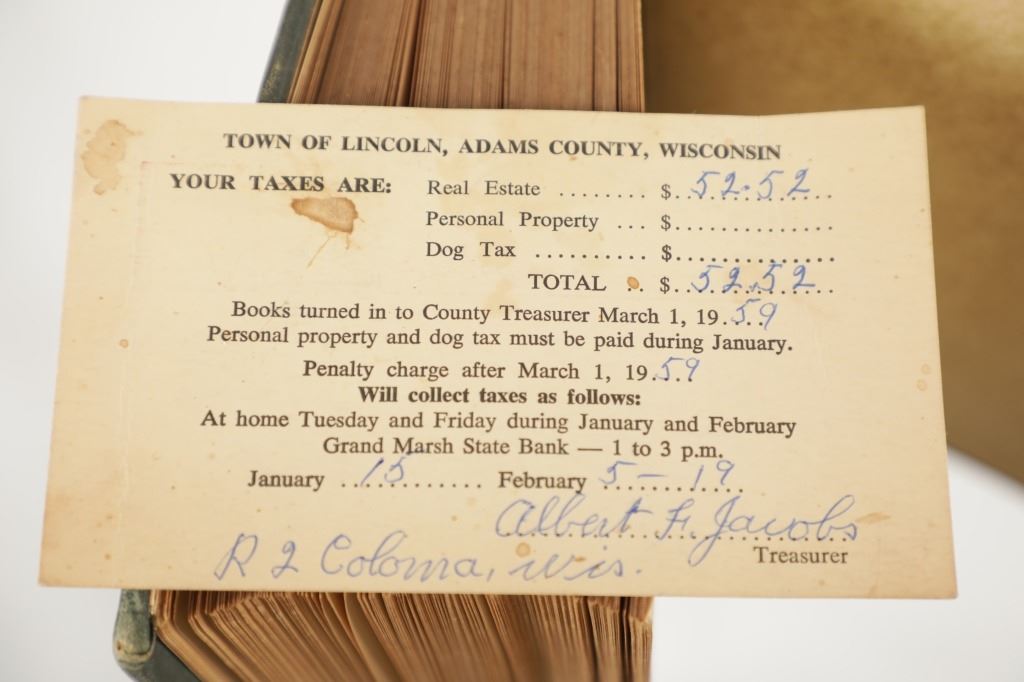 TOWN OF LINCOLN, ADAMS COUNTY, WISCONSIN
YOUR TAXES ARE: Real Estate ........ $..52.52..
Personal Property ... $..............
Dog Tax .......... $..............
TOTAL .. $..52.52..
Books turned in to County Treasurer March 1, 19.59
Personal property and dog tax must be paid during January.
Penalty charge after March 1, 19.59
Will collect taxes as follows:
At home Tuesday and Friday during January and February
Grand Marsh State Bank — 1 to 3 p.m.
January ..15........ February 5 – 19
Albert F. Jacobs
Treasurer
R 2 Coloma, Wis.